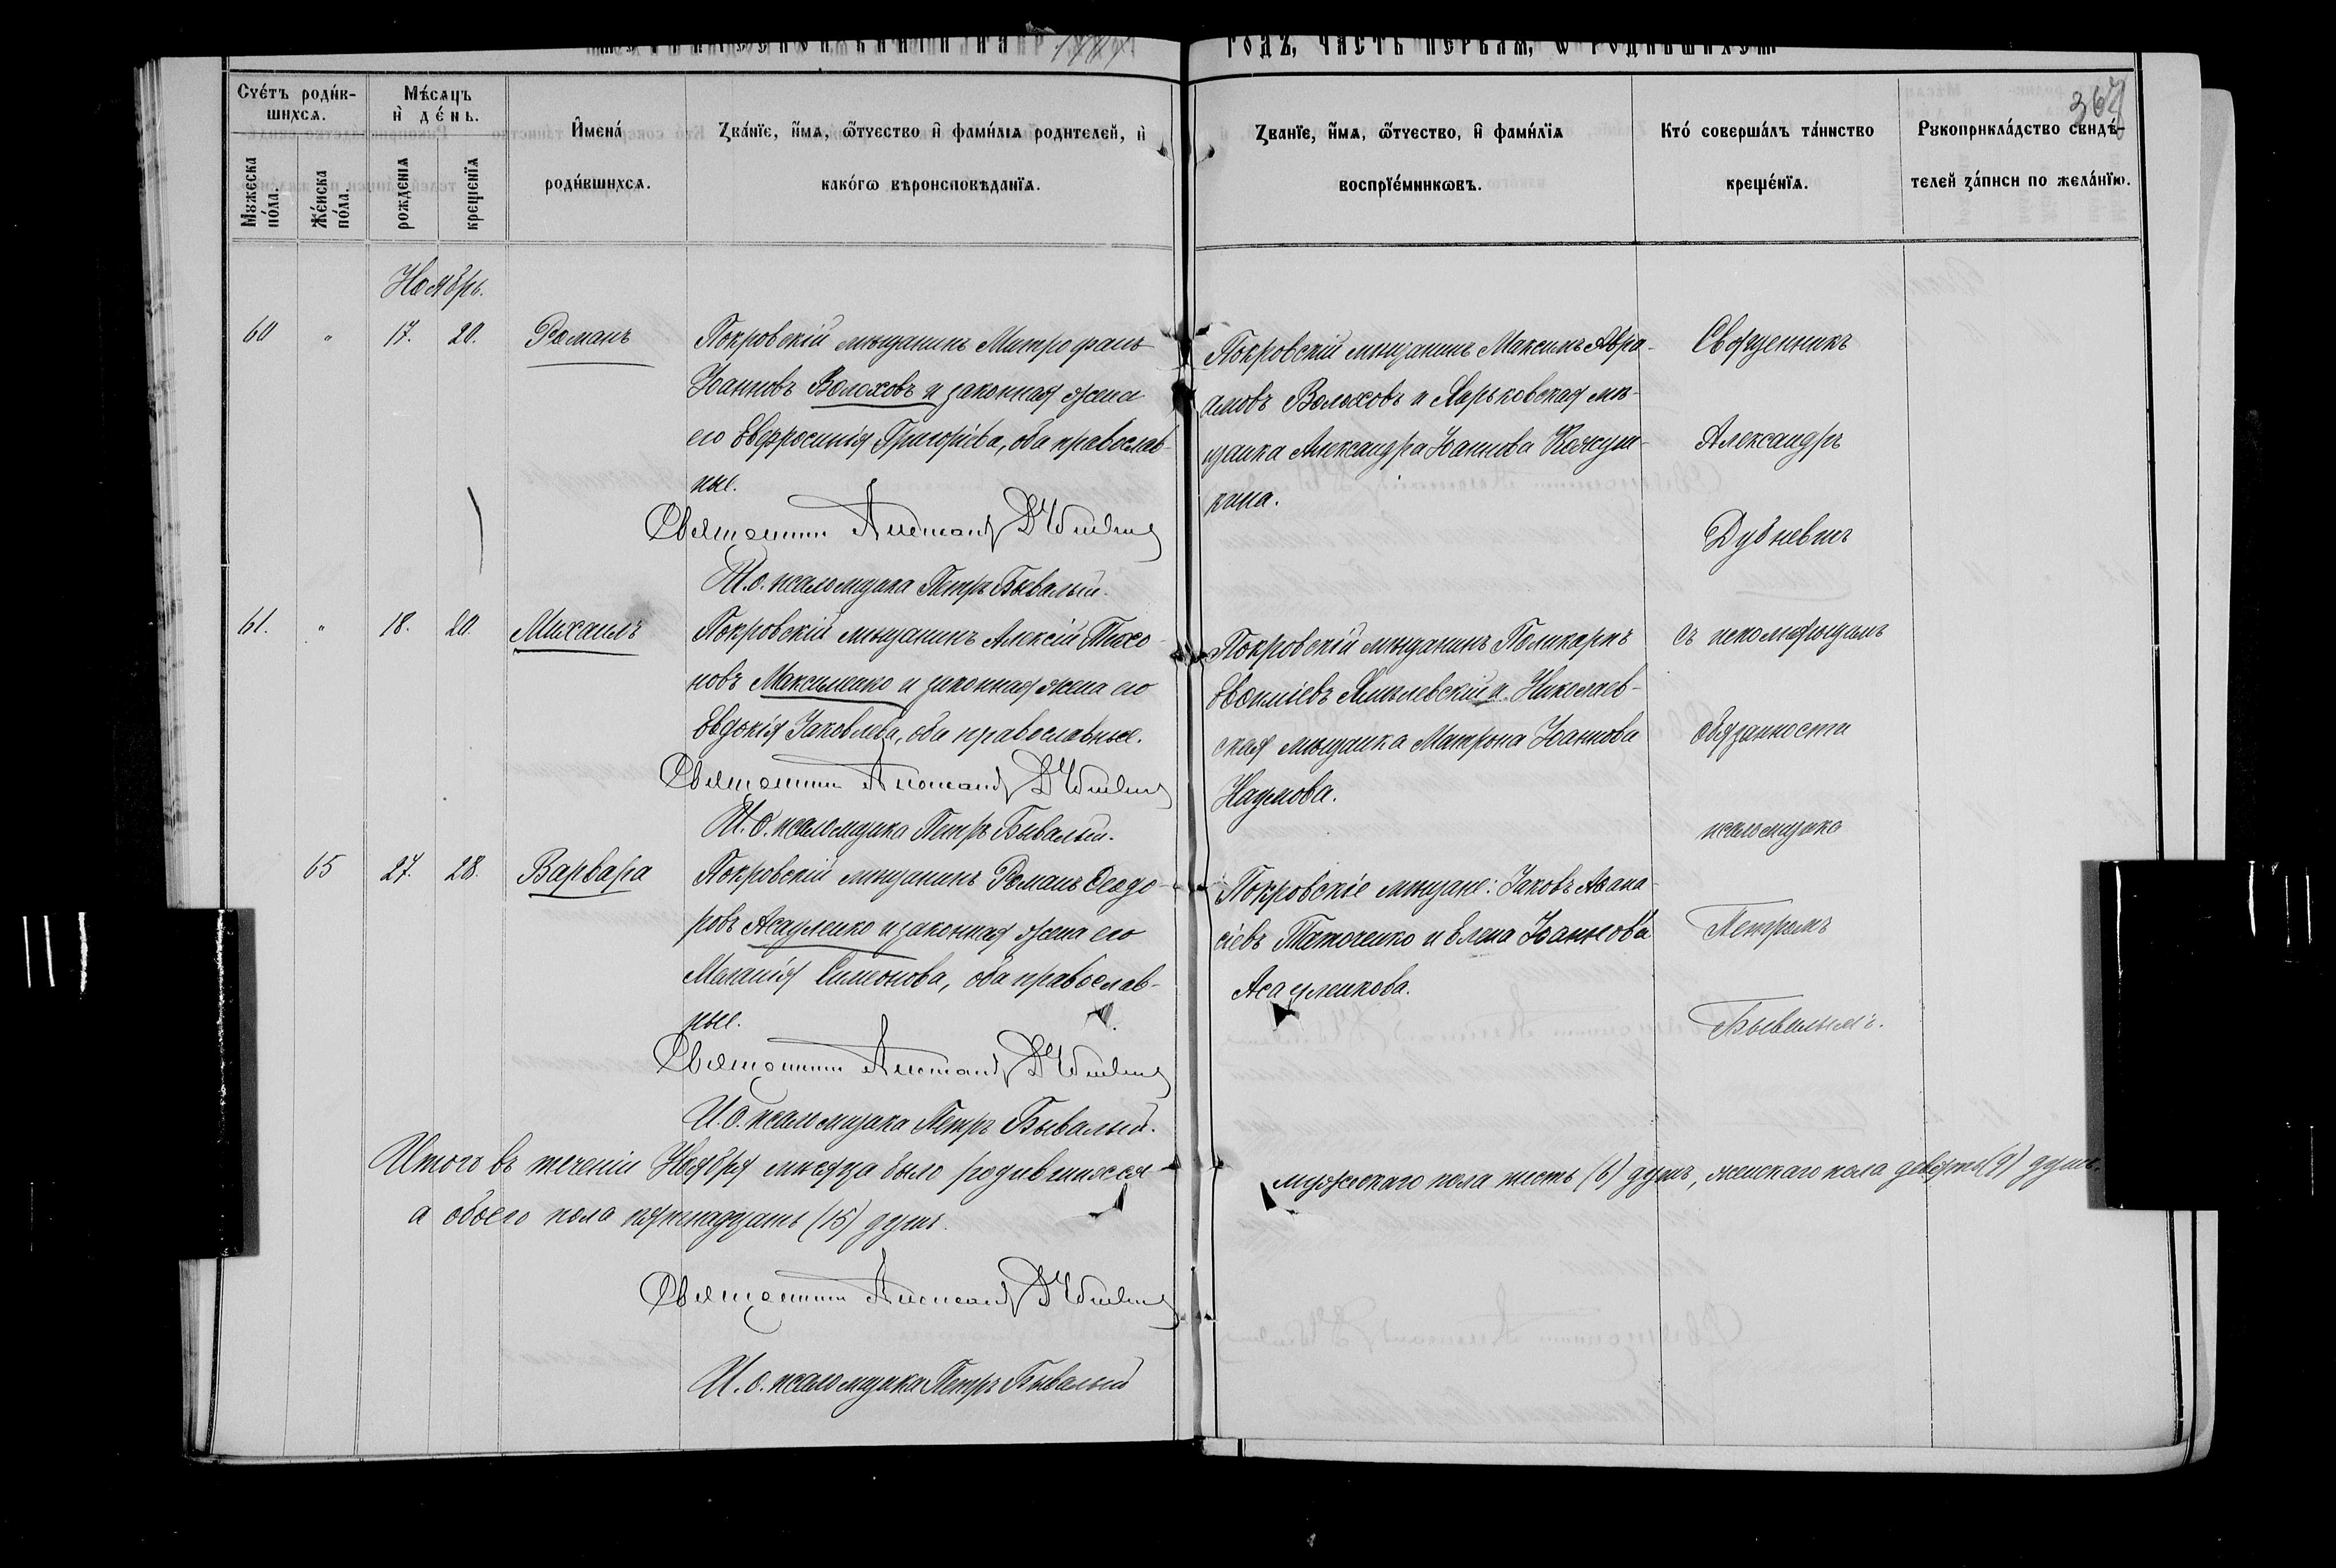 годъ, часть первая, ѡ родившихся.
367
Счетъ родив-
шихся.
Мужеска
пола.
Женска
пола.
Мѣсяцъ
и день.
рожденія
крещенія
Имена
родившихся.
Званіе, имя, ѡтчество и фамилія родителей, и
какогѡ вѣроисповѣданія.
Званіе, имя, ѡтчество, и фамилія
воспріемникѡвъ.
Кто совершалъ таинство
крещенія.
Рукоприкладство свидѣ-
телей записи по желанію.
Ноябрь.
60 " 17. 20. Романъ
Покровскій мѣщанинъ Митрофанъ
Іоанновъ Волоховъ и законная жена
его Евфросинія Григоріева, оба православ-
ные.
Священникъ Александръ
И. о. псаломщика Петръ Бывалый.
Покровскій мѣщанинъ Максимъ Авра-
амовъ Волоховъ и Харьковская мѣ-
щанка Александра Іоаннова
кина.
Священникъ
Александръ
Дубневичъ
61. " 18. 20. Михаилъ
Покровскій мѣщанинъ Алексій Тихо-
новъ Максименко и законная жена его
Евдокія Іаковлева, оба православные.
Священникъ Александръ
И. о. псаломщика Петръ Бывалый.
Покровскій мѣщанинъ Поликарпъ
и Николаев-
ская мѣщанка Матрона Іоаннова
Наумова.
съ исполняющимъ
обязанности
псаломщика
65 27. 28. Варвара
Покровскій мѣщанинъ Романъ Ѳеодо-
ровъ Асауленко и законная жена его
Меланія Симеонова, оба православ-
ные.
Священникъ Александръ
И. о. псаломщика Петръ Бывалый.
Покровскіе мѣщане: Іаковъ Аѳана-
сіевъ и Елена Іоаннова
Асауленкова.
Петромъ
Бывалымъ.
Итого въ теченіи Ноября мѣсяца было родившихся мужескаго пола шесть (6) душъ, женскаго пола девять (9) душъ,
а обоего пола пятнадцать (15) душъ.
Священникъ Александръ
И. о. псаломщика Петръ Бывалый